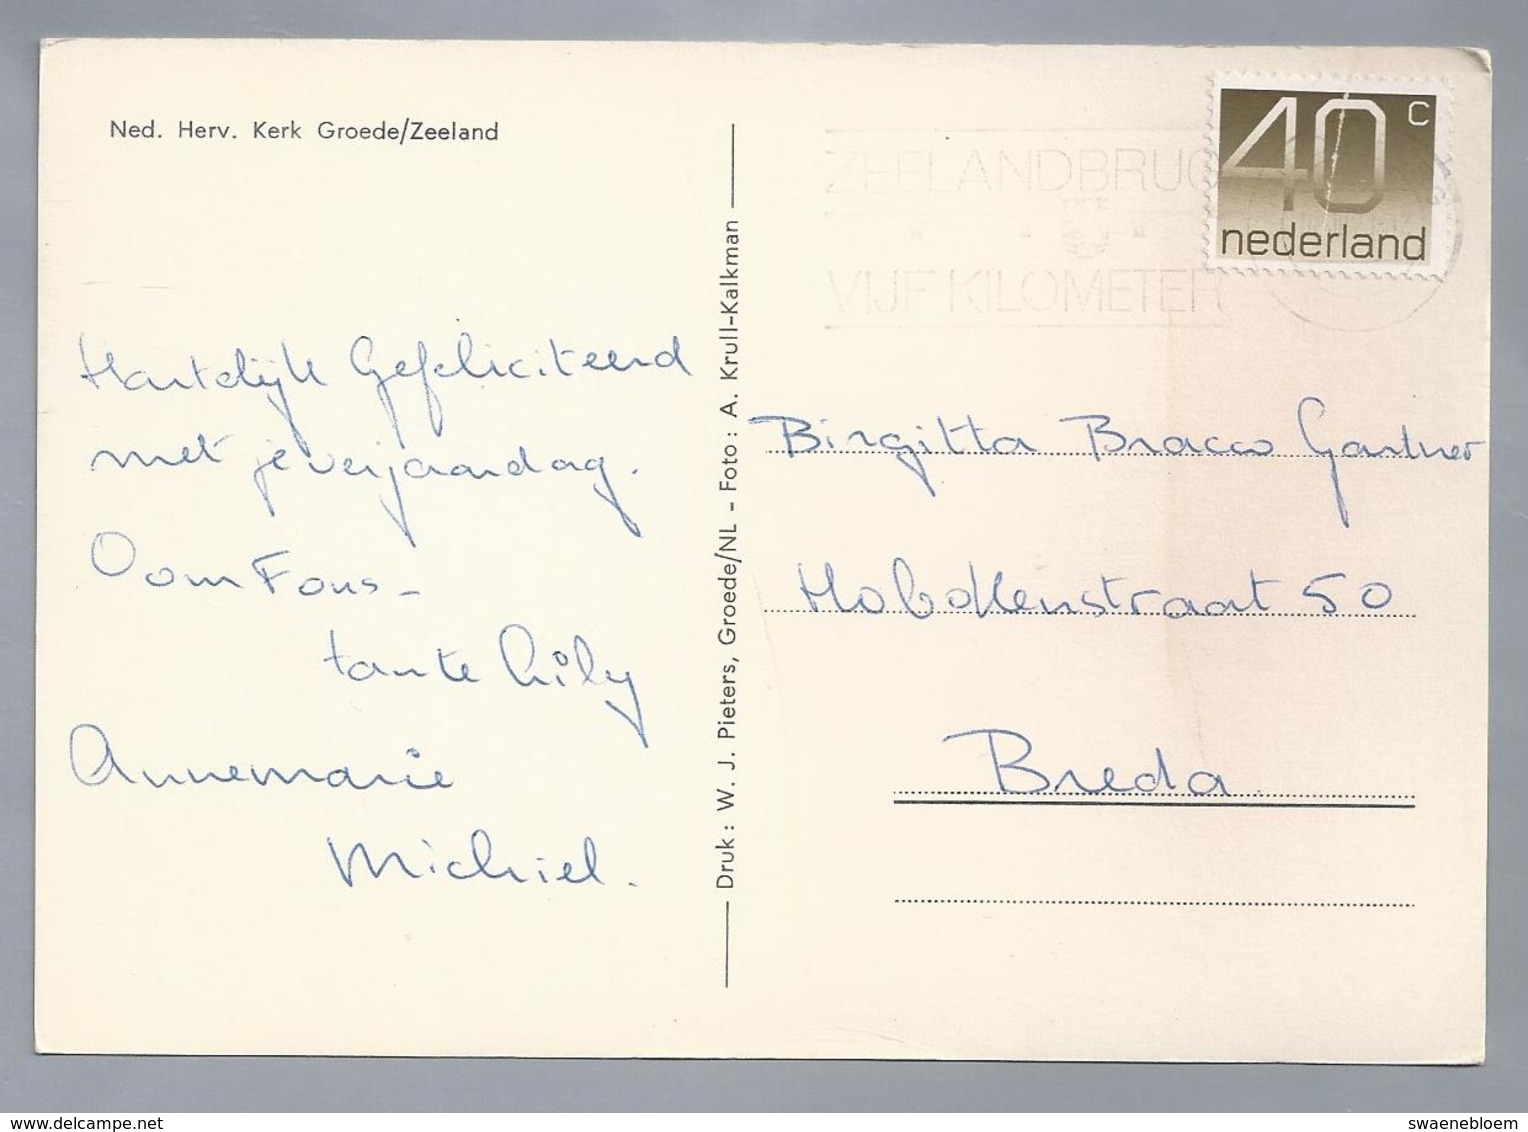 Ned. Herv. Kerk Groede/Zeeland
Hartelijk Gefeliciteerd
met je verjaardag.
Oom Fons -
tante Lily
Annemarie
Michiel.
Druk: W. J. Pieters, Groede/NL - Foto: A. Krull-Kalkman
ZEELANDBRUG
VIJF KILOMETER
40 c
nederland
Birgitta Bracco Gartner
Hobokenstraat 50
Breda
www.delcampe.net
swaenebloem